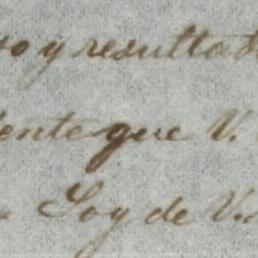 y resulta
ente que V.
Soy de V.